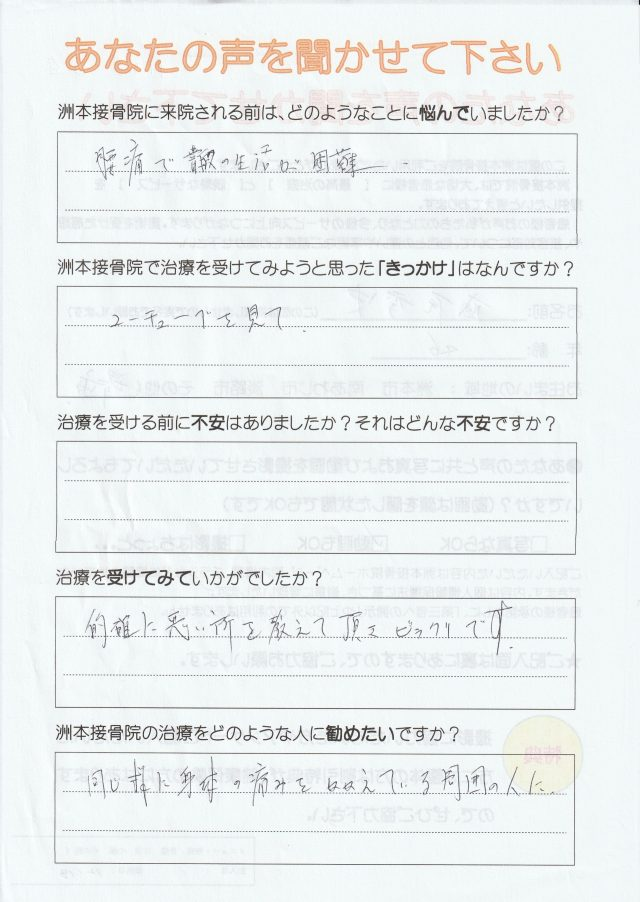 あなたの声を聞かせて下さい
洲本接骨院に来院される前は、どのようなことに悩んでいましたか？
腰痛で の生活が困難
洲本接骨院で治療を受けてみようと思った「きっかけ」はなんですか？
ユーチューブを見て
治療を受ける前に不安はありましたか？それはどんな不安ですか？
治療を受けてみていかがでしたか？
的確に悪い所を教えて頂きビックリです。
洲本接骨院の治療をどのような人に勧めたいですか？
同じ様に身体の痛みを抱えている周囲の人に。